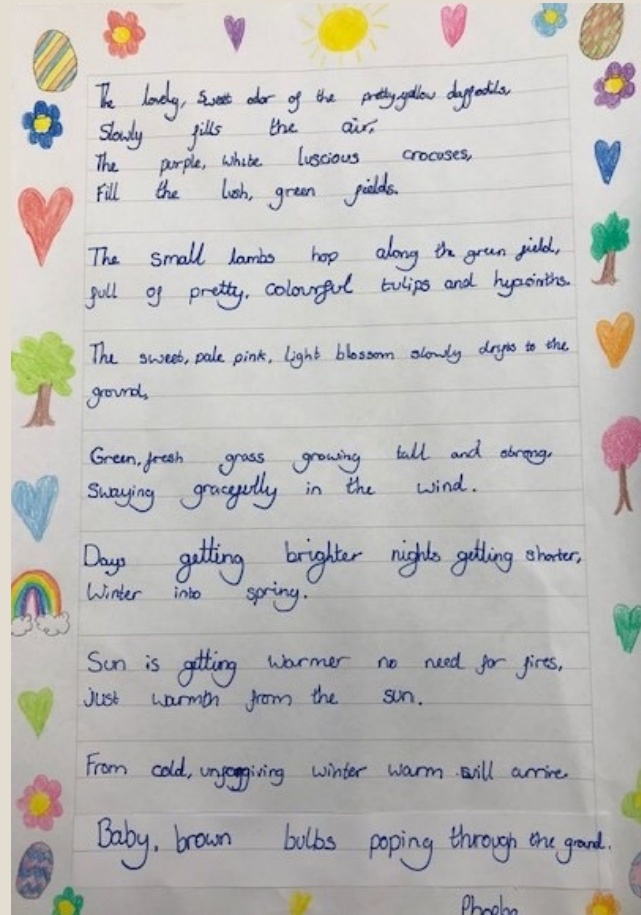 The lovely, sweet odor of the pretty, yellow daffodils,
Slowly fills the air,
The purple, white luscious crocuses,
Fill the lush, green fields.
The small lambs hop along the green field,
full of pretty, colourful tulips and hyacinths.
The sweet, pale pink, light blossom slowly drops to the
ground,
Green, fresh grass growing tall and strong,
Swaying gracefully in the wind.
Days getting brighter nights getting shorter,
Winter into spring.
Sun is getting warmer no need for fires,
Just warmth from the sun.
From cold, unforgiving winter warm will arrive.
Baby, brown bulbs poping through the ground.
Phoebe